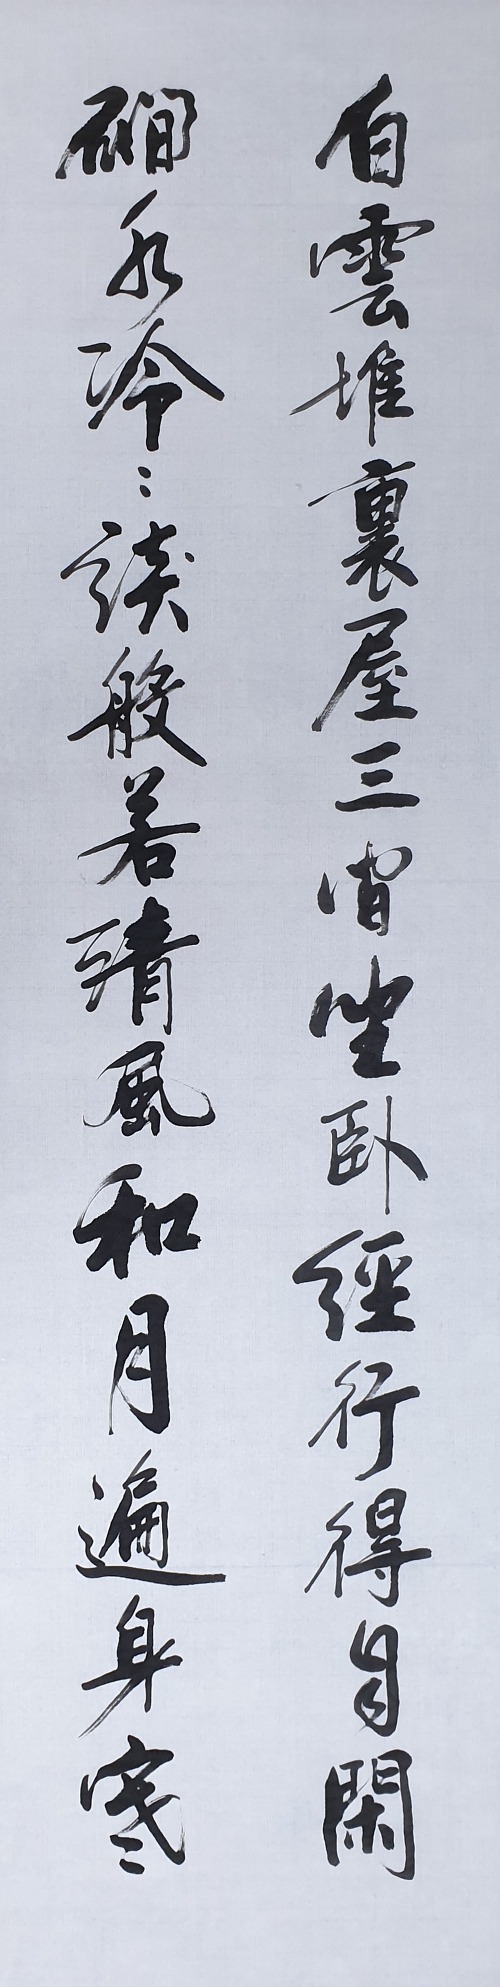 白雲堆裏屋三間坐臥經行得自閑
磵水冷〻談般若清風和月遍身寒